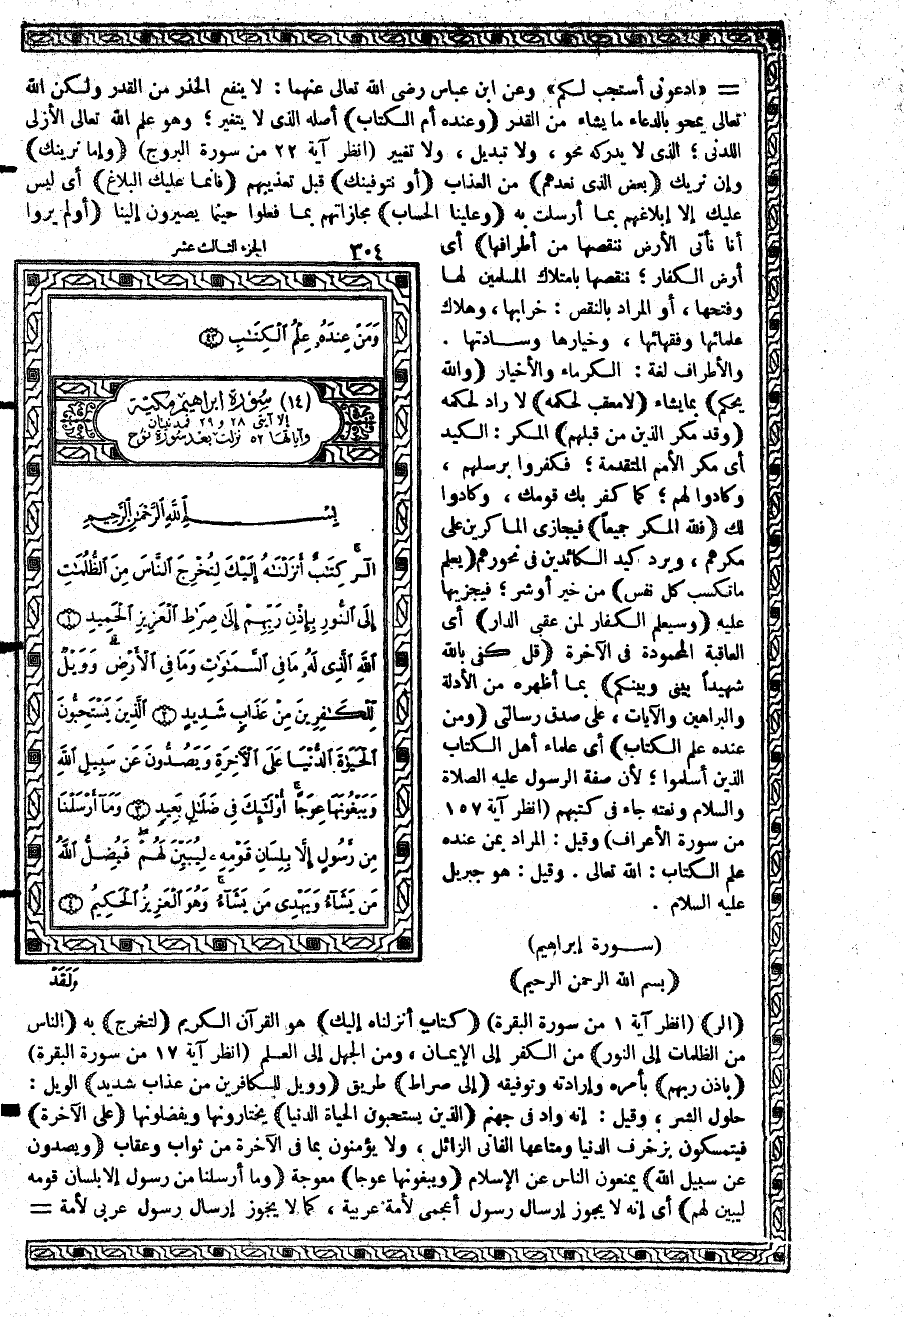 = «ادعونى أستجب لكم» وعن ابن عباس رضى الله تعالى عنهما : لا ينفع الحذر من القدر ولكن الله
تعالى يمحو بالدعاء ما يشاء من القدر (وعنده أم الكتاب) أصله الذى لا يتغير ؛ وهو علم الله تعالى الأزلى
اللدنى ؛ الذى لا يدركه محو ، ولا تبديل ، ولا تغيير (انظر آية ٢٢ من سورة البروج) (وإما نرينك)
وإن نريك (بعض الذى نعدهم) من العذاب (أو نتوفينك) قبل تعذيبهم (فإنما عليك البلاغ) أى ليس
عليك إلا إبلاغهم بما أرسلت به (وعلينا الحساب) مجازاتهم بما فعلوا حينما يصيرون إلينا (أولم يروا
أنا نأتى الأرض ننقصها من أطرافها) أى
أرض الكفار ؛ ننقصها بامتلاك المسلمين لها
وفتحها ، أو المراد بالنقص : خرابها ، وهلاك
علمائها وفقهائها ، وخيارها وسادتها .
والأطراف لغة : الكرماء والأخيار (والله
يحكم) بما يشاء (لا معقب لحكمه) لا راد لحكمه
(وقد مكر الذين من قبلهم) المكر : الكيد
أى مكر الأمم المتقدمة ؛ فكفروا برسلهم ،
وكادوا لهم ؛ كما كفر بك قومك ، وكادوا
لك (فلله المكر جميعاً) فيجازى الماكرين على
مكرهم ، ويرد كيد الكائدين فى نحورهم (يعلم
ما تكسب كل نفس) من خير أو شر ؛ فيجزيها
عليه (وسيعلم الكفار لمن عقبى الدار) أى
العاقبة المحمودة فى الآخرة (قل كفى بالله
شهيداً بينى وبينكم) بما أظهره من الأدلة
والبراهين والآيات ، على صدق رسالتى (ومن
عنده علم الكتاب) أى علماء أهل الكتاب
الذين أسلموا ؛ لأن صفة الرسول عليه الصلاة
والسلام ونعته جاء فى كتبهم (انظر آية ١٥٧
من سورة الأعراف) وقيل : المراد بمن عنده
علم الكتاب : الله تعالى . وقيل : هو جبريل
عليه السلام .
٣٠٤ الجزء الثالث عشر
وَمَنْ عِندَهُۥ عِلْمُ ٱلْكِتَٰبِ ٤٣
(١٤) سورة ابراهيم مكية
إلا آيتى ٢٨ و ٢٩ فمدنيتان
وآياتها ٥٢ نزلت بعد سورة نوح
بِسْمِ ٱللَّهِ ٱلرَّحْمَٰنِ ٱلرَّحِيمِ
الٓر كِتَٰبٌ أَنزَلْنَٰهُ إِلَيْكَ لِتُخْرِجَ ٱلنَّاسَ مِنَ ٱلظُّلُمَٰتِ
إِلَى ٱلنُّورِ بِإِذْنِ رَبِّهِمْ إِلَىٰ صِرَٰطِ ٱلْعَزِيزِ ٱلْحَمِيدِ ١
ٱللَّهِ ٱلَّذِى لَهُۥ مَا فِى ٱلسَّمَٰوَٰتِ وَمَا فِى ٱلْأَرْضِ ۗ وَوَيْلٌ
لِّلْكَٰفِرِينَ مِنْ عَذَابٍ شَدِيدٍ ٢ ٱلَّذِينَ يَسْتَحِبُّونَ
ٱلْحَيَوٰةَ ٱلدُّنْيَا عَلَى ٱلْءَاخِرَةِ وَيَصُدُّونَ عَن سَبِيلِ ٱللَّهِ
وَيَبْغُونَهَا عِوَجًا ۚ أُوْلَٰٓئِكَ فِى ضَلَٰلٍۭ بَعِيدٍ ٣ وَمَآ أَرْسَلْنَا
مِن رَّسُولٍ إِلَّا بِلِسَانِ قَوْمِهِۦ لِيُبَيِّنَ لَهُمْ ۖ فَيُضِلُّ ٱللَّهُ
مَن يَشَآءُ وَيَهْدِى مَن يَشَآءُ ۚ وَهُوَ ٱلْعَزِيزُ ٱلْحَكِيمُ ٤
وَلَقَدْ
(سورة إبراهيم)
(بسم الله الرحمن الرحيم)
(الر) (انظر آية ١ من سورة البقرة) (كتاب أنزلناه إليك) هو القرآن الكريم (لتخرج) به (الناس
من الظلمات إلى النور) من الكفر إلى الإيمان ، ومن الجهل إلى العلم (انظر آية ١٧ من سورة البقرة)
(بإذن ربهم) بأمره وإرادته وتوفيقه (إلى صراط) طريق (وويل للكافرين من عذاب شديد) الويل :
حلول الشر ، وقيل : إنه واد فى جهنم (الذين يستحبون الحياة الدنيا) يختارونها ويفضلونها (على الآخرة)
فيتمسكون بزخرف الدنيا ومتاعها الفانى الزائل ، ولا يؤمنون بما فى الآخرة من ثواب وعقاب (ويصدون
عن سبيل الله) يمنعون الناس عن الإسلام (ويبغونها عوجا) معوجة (وما أرسلنا من رسول إلا بلسان قومه
ليبين لهم) أى إنه لا يجوز إرسال رسول أعجمى لأمة عربية ، كما لا يجوز إرسال رسول عربى لأمة =